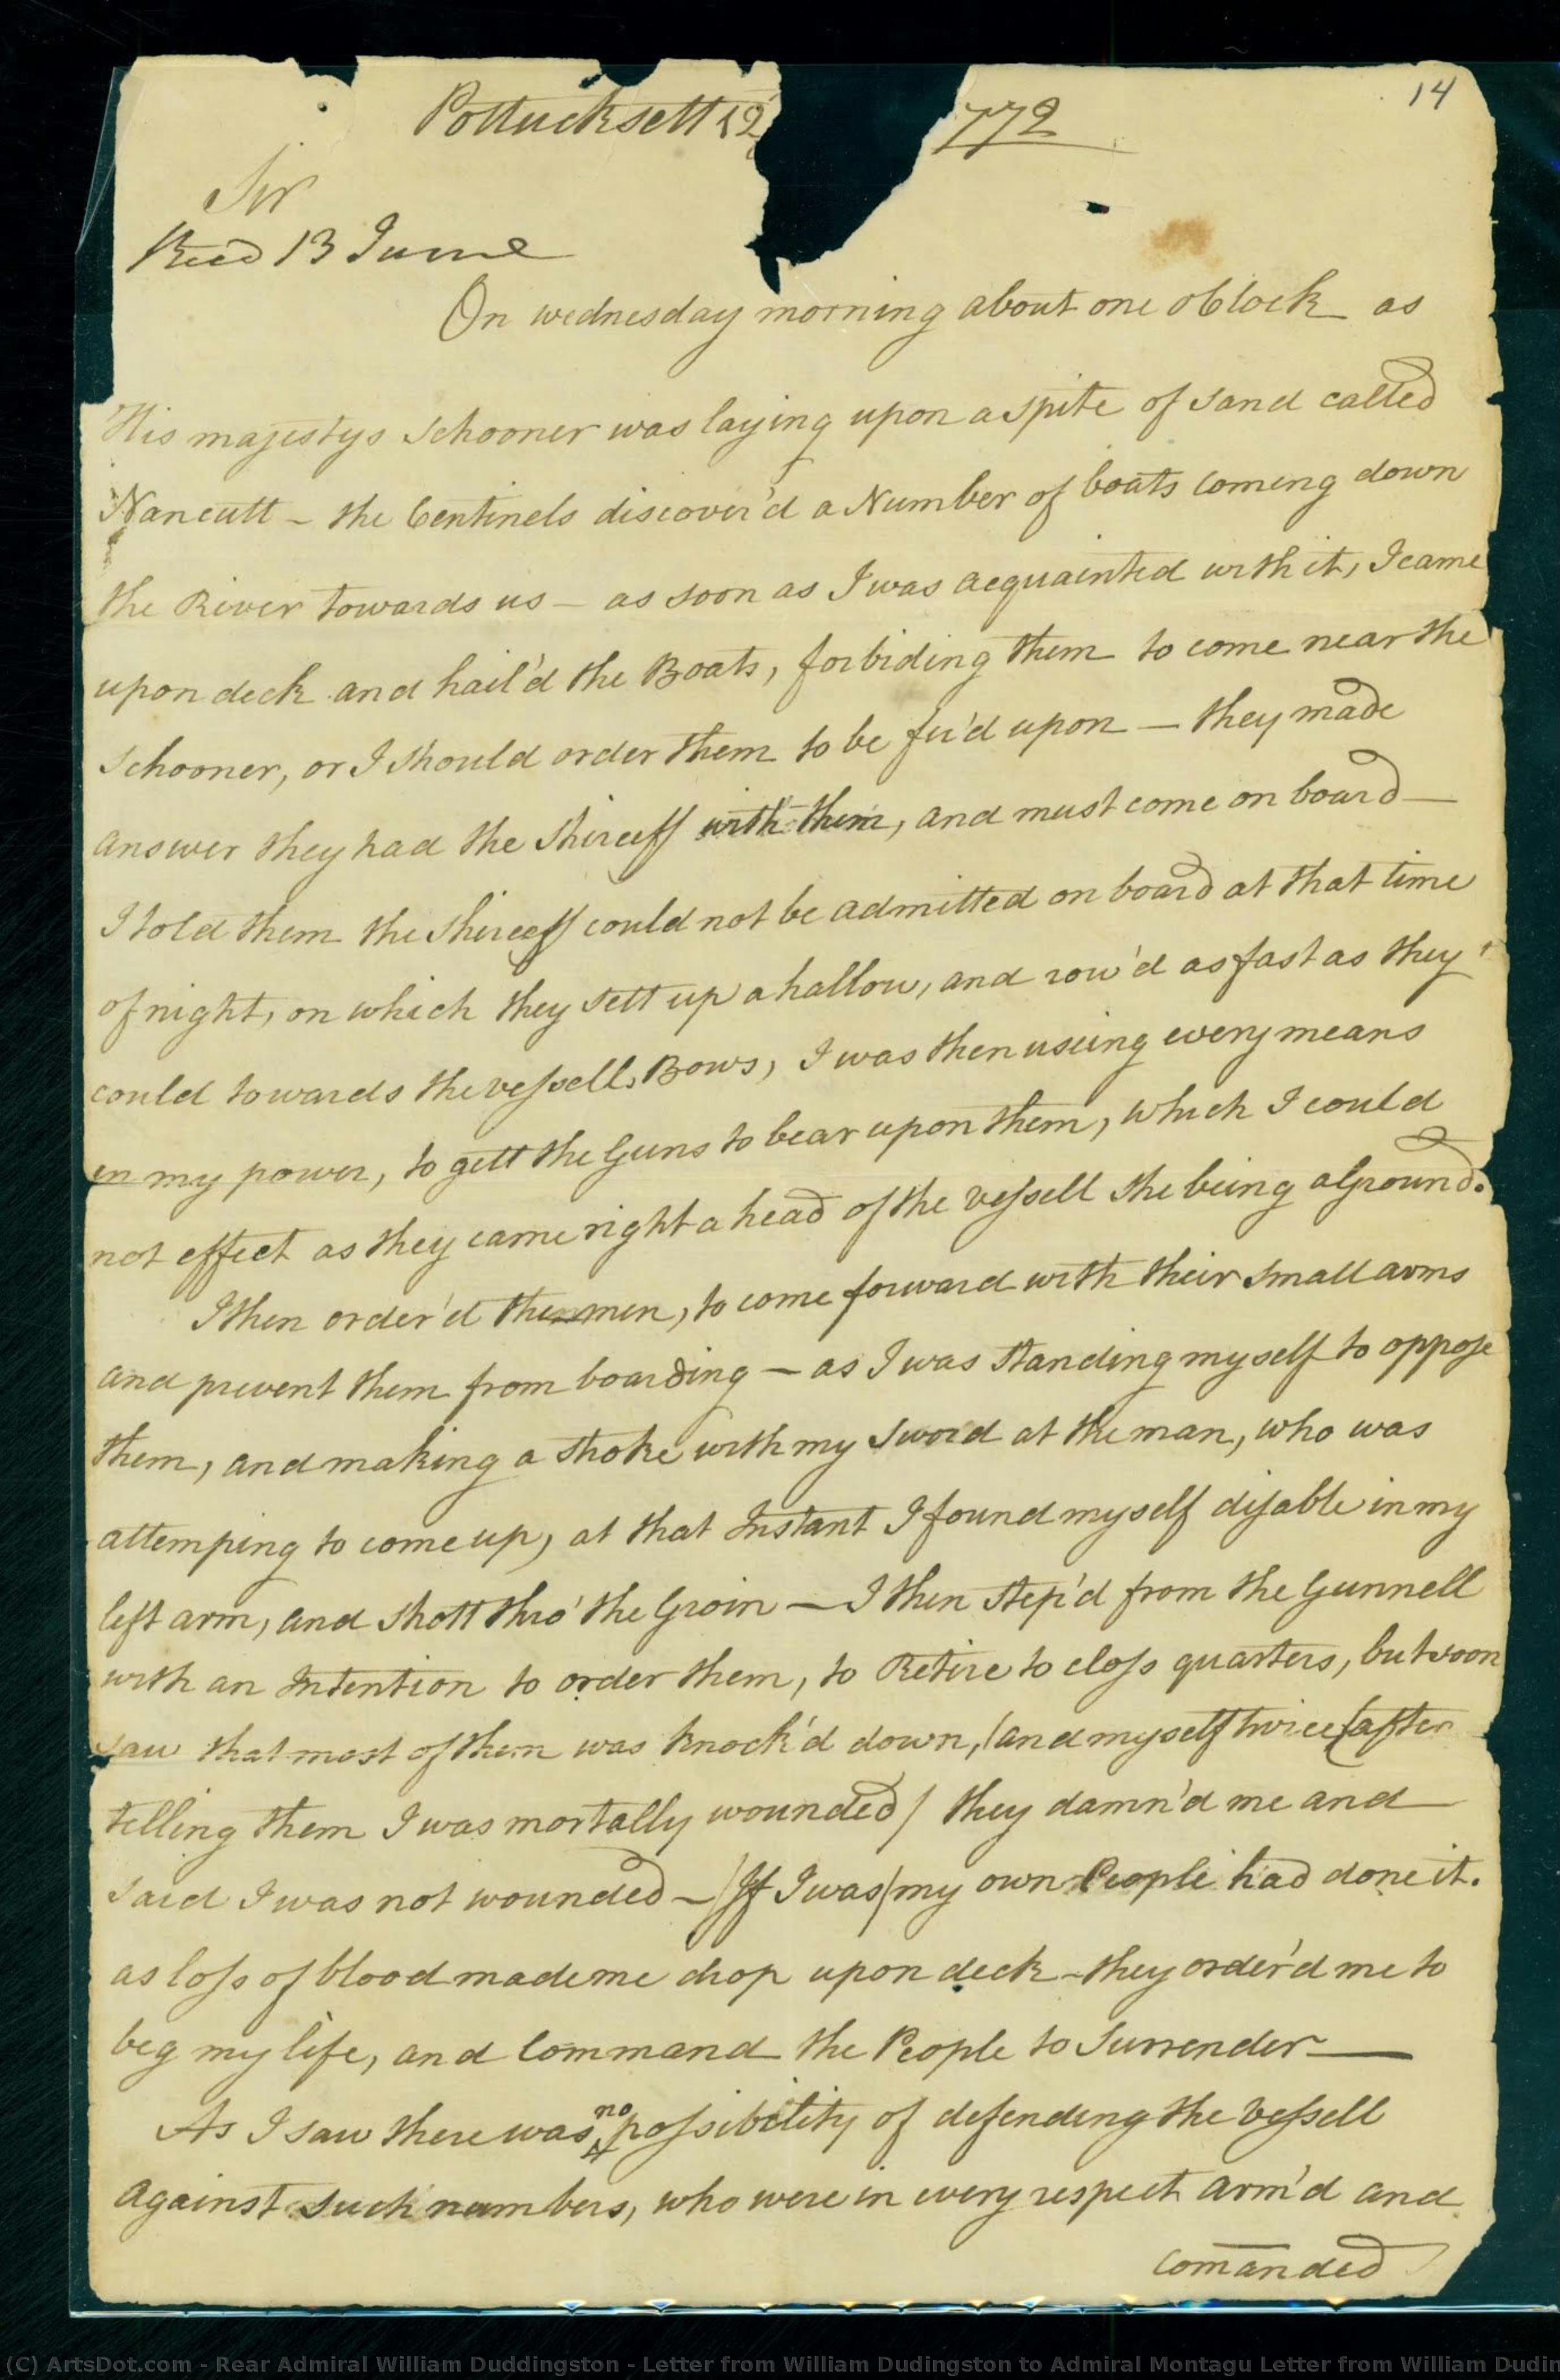 14
Pottucksett 12 772
Sir
Recd 13 June
On wednesday morning about one oClock as
His majestys schooner was laying upon a spite of sand called
Nancutt - the Centinels discover'd a Number of boats coming down
the River towards us - as soon as I was acquainted with it, I came
upon deck and hail'd the Boats, forbiding them to come near the
schooner, or I should order them to be fir'd upon - they made
answer they had the shireeff with them, and must come on board -
I told them the shireeff could not be admitted on board at that time
of night, on which they sett up a hallow, and row'd as fast as they
could towards the vessells Bows, I was then useing every means
in my power, to gett the Guns to bear upon them, which I could
not effect as they came right ahead of the vessell she being aGround.
I then order'd the men, to come forward with their small arms
and prevent them from boarding - as I was standing myself to oppose
them, and making a stroke with my sword at the man, who was
attemping to come up, at that Instant I found myself disable in my
left arm, and shott thro' the Groin - I then step'd from the Gunnell
with an Intention to order them, to Retire to closs quarters, but soon
saw that most of them was knock'd down, (and myself twice (after
telling them I was mortally wounded) they damn'd me and
said I was not wounded - (If I was) my own People had done it.
as loss of blood made me drop upon deck - they order'd me to
beg my life, and Command the People to Surrender -
As I saw there was no possibility of defending the vessell
against such numbers, who were in every respect arm'd and
comanded
(C) ArtsDot.com - Rear Admiral William Duddingston - Letter from William Dudingston to Admiral Montagu Letter from William Dudin